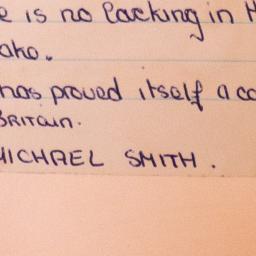 e is no lacking in H
ako.
has proved itself a co
BRITAIN.
MICHAEL SMITH.